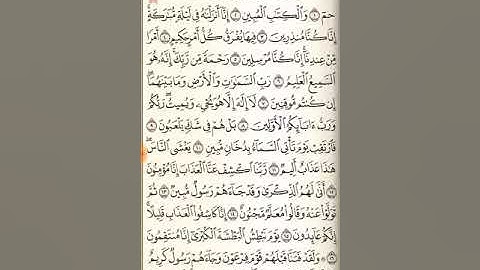 حمٓ ١ وَٱلْكِتَٰبِ ٱلْمُبِينِ ٢ إِنَّآ أَنزَلْنَٰهُ فِى لَيْلَةٍ مُّبَٰرَكَةٍ
إِنَّا كُنَّا مُنذِرِينَ ٣ فِيهَا يُفْرَقُ كُلُّ أَمْرٍ حَكِيمٍ ٤ أَمْرًا
مِّنْ عِندِنَآ إِنَّا كُنَّا مُرْسِلِينَ ٥ رَحْمَةً مِّن رَّبِّكَ إِنَّهُۥ هُوَ
ٱلسَّمِيعُ ٱلْعَلِيمُ ٦ رَبِّ ٱلسَّمَٰوَٰتِ وَٱلْأَرْضِ وَمَا بَيْنَهُمَآ
إِن كُنتُم مُّوقِنِينَ ٧ لَآ إِلَٰهَ إِلَّا هُوَ يُحْىِۦ وَيُمِيتُ رَبُّكُمْ
وَرَبُّ ءَابَآئِكُمُ ٱلْأَوَّلِينَ ٨ بَلْ هُمْ فِى شَكٍّ يَلْعَبُونَ ٩
فَٱرْتَقِبْ يَوْمَ تَأْتِى ٱلسَّمَآءُ بِدُخَانٍ مُّبِينٍ ١٠ يَغْشَى ٱلنَّاسَ
هَٰذَا عَذَابٌ أَلِيمٌ ١١ رَّبَّنَا ٱكْشِفْ عَنَّا ٱلْعَذَابَ إِنَّا مُؤْمِنُونَ
١٢ أَنَّىٰ لَهُمُ ٱلذِّكْرَىٰ وَقَدْ جَآءَهُمْ رَسُولٌ مُّبِينٌ ١٣ ثُمَّ
تَوَلَّوْا۟ عَنْهُ وَقَالُوا۟ مُعَلَّمٌ مَّجْنُونٌ ١٤ إِنَّا كَاشِفُوا۟ ٱلْعَذَابِ قَلِيلًا
إِنَّكُمْ عَآئِدُونَ ١٥ يَوْمَ نَبْطِشُ ٱلْبَطْشَةَ ٱلْكُبْرَىٰٓ إِنَّا مُنتَقِمُونَ
١٦ وَلَقَدْ فَتَنَّا قَبْلَهُمْ قَوْمَ فِرْعَوْنَ وَجَآءَهُمْ رَسُولٌ كَرِيمٌ